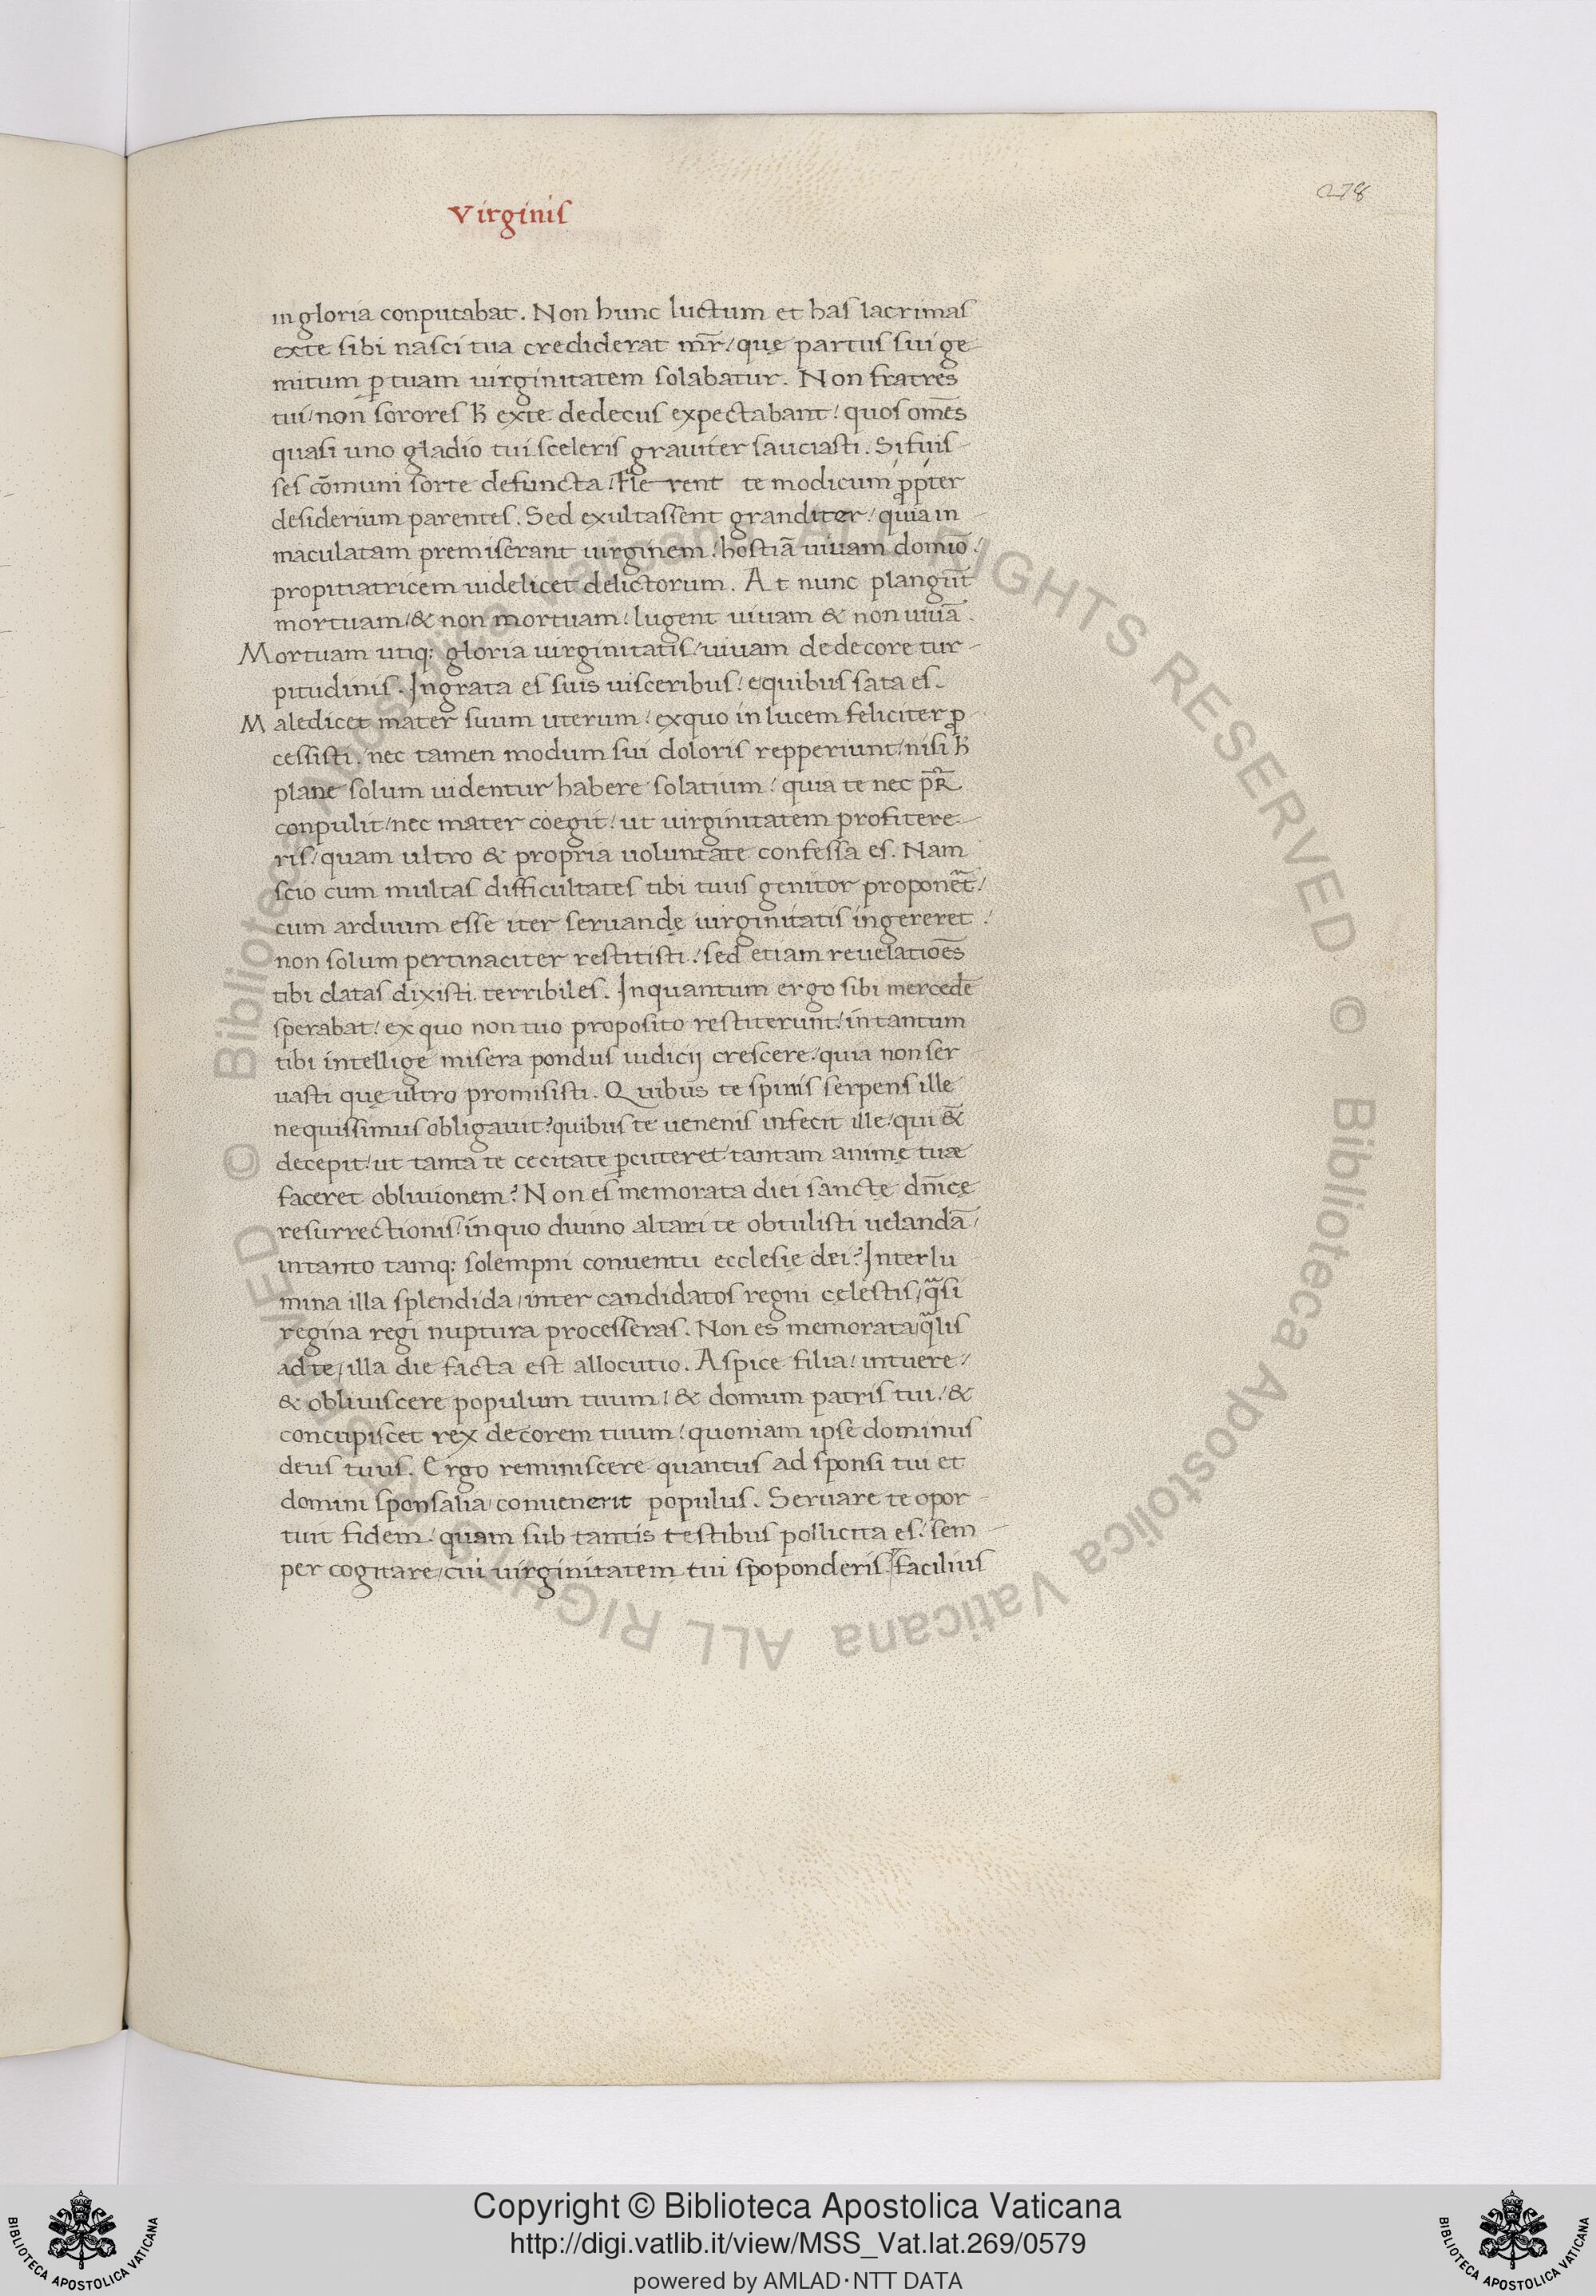 Virginis
278
in gloria conputabat. Non hunc luctum et has lacrimas
exte sibi nasci tua crediderat mr̄/ quę partus sui ge-
mitum ꝑ tuam uirginitatem solabatur. Non fratres
tui/ non sorores h̄ exte dedecus expectabant/ quos om̄es
quasi uno gladio tui sceleris grauiter sauciasti. Si fuis-
ses cōmuni sorte defuncta/ flerent te modicum ꝓpter
desiderium parentes. Sed exultassent granditer/ quia in-
maculatam premiserant uirginem/ hostiā uiuam domino/
propitiatricem uidelicet delictorum. At nunc plangūt
mortuam/ & non mortuam/ lugent uiuam & non uiuā.
Mortuam utiq: gloria uirginitatis/ uiuam dedecore tur-
pitudinis. Ingrata es suis uisceribus/ e quibus sata es.
Maledicet mater suum uterum/ ex quo in lucem feliciter ꝓ-
cessisti/ nec tamen modum sui doloris repperiunt/ nisi h̄
plane solum uidentur habere solatium/ quia te nec pr̄
conpulit/ nec mater coegit/ ut uirginitatem profitere-
ris/ quam ultro & propria uoluntate confessa es. Nam
scio cum multas difficultates tibi tuus genitor proponer̄et/
cum arduum esse iter seruandę uirginitatis ingereret/
non solum pertinaciter restitisti/ sed etiam reuelatiōes
tibi datas dixisti terribiles. Inquantum ergo sibi mercedē
sperabat/ ex quo non tuo proposito restiterunt/ intantum
tibi intellige misera pondus iudicij crescere/ quia non ser-
uasti quę ultro promisisti. Quibus te spiris serpens ille
nequissimus obligauit? quibus te uenenis infecit ille/ qui &
decepit/ ut tanta te cecitate ꝑcuteret/ tantam animę tuæ
faceret obliuionem? Non es memorata diei sanctę dn̄icę
resurrectionis/ in quo diuino altari te obtulisti uelandā/
intanto tamq: solempni conuentu ecclesię dei? Inter lu
mina illa splendida/ inter candidatos regni cęlestis/ qͣsi
regina regi nuptura processeras. Non es memorata/ qͣlis
ad te/ illa die facta est allocutio. Aspice filia/ intuere/
& obliuiscere populum tuum/ & domum patris tui/ &
concupiscet rex decorem tuum/ quoniam ipse dominus
deus tuus. Ergo reminiscere quantus ad sponsi tui et
domini sponsalia conuenerit populus. Seruare te opor-
tuit fidem/ quam sub tantis testibus pollicita es/ sem-
per cogitare/ cui uirginitatem tui spoponderis. facilius
© Biblioteca Apostolica Vaticana ALL RIGHTS RESERVED
© Biblioteca Apostolica Vaticana ALL RIGHTS RESERVED
Copyright © Biblioteca Apostolica Vaticana
http://digi.vatlib.it/view/MSS_Vat.lat.269/0579
powered by AMLAD·NTT DATA
BIBLIOTECA APOSTOLICA VATICANA
BIBLIOTECA APOSTOLICA VATICANA